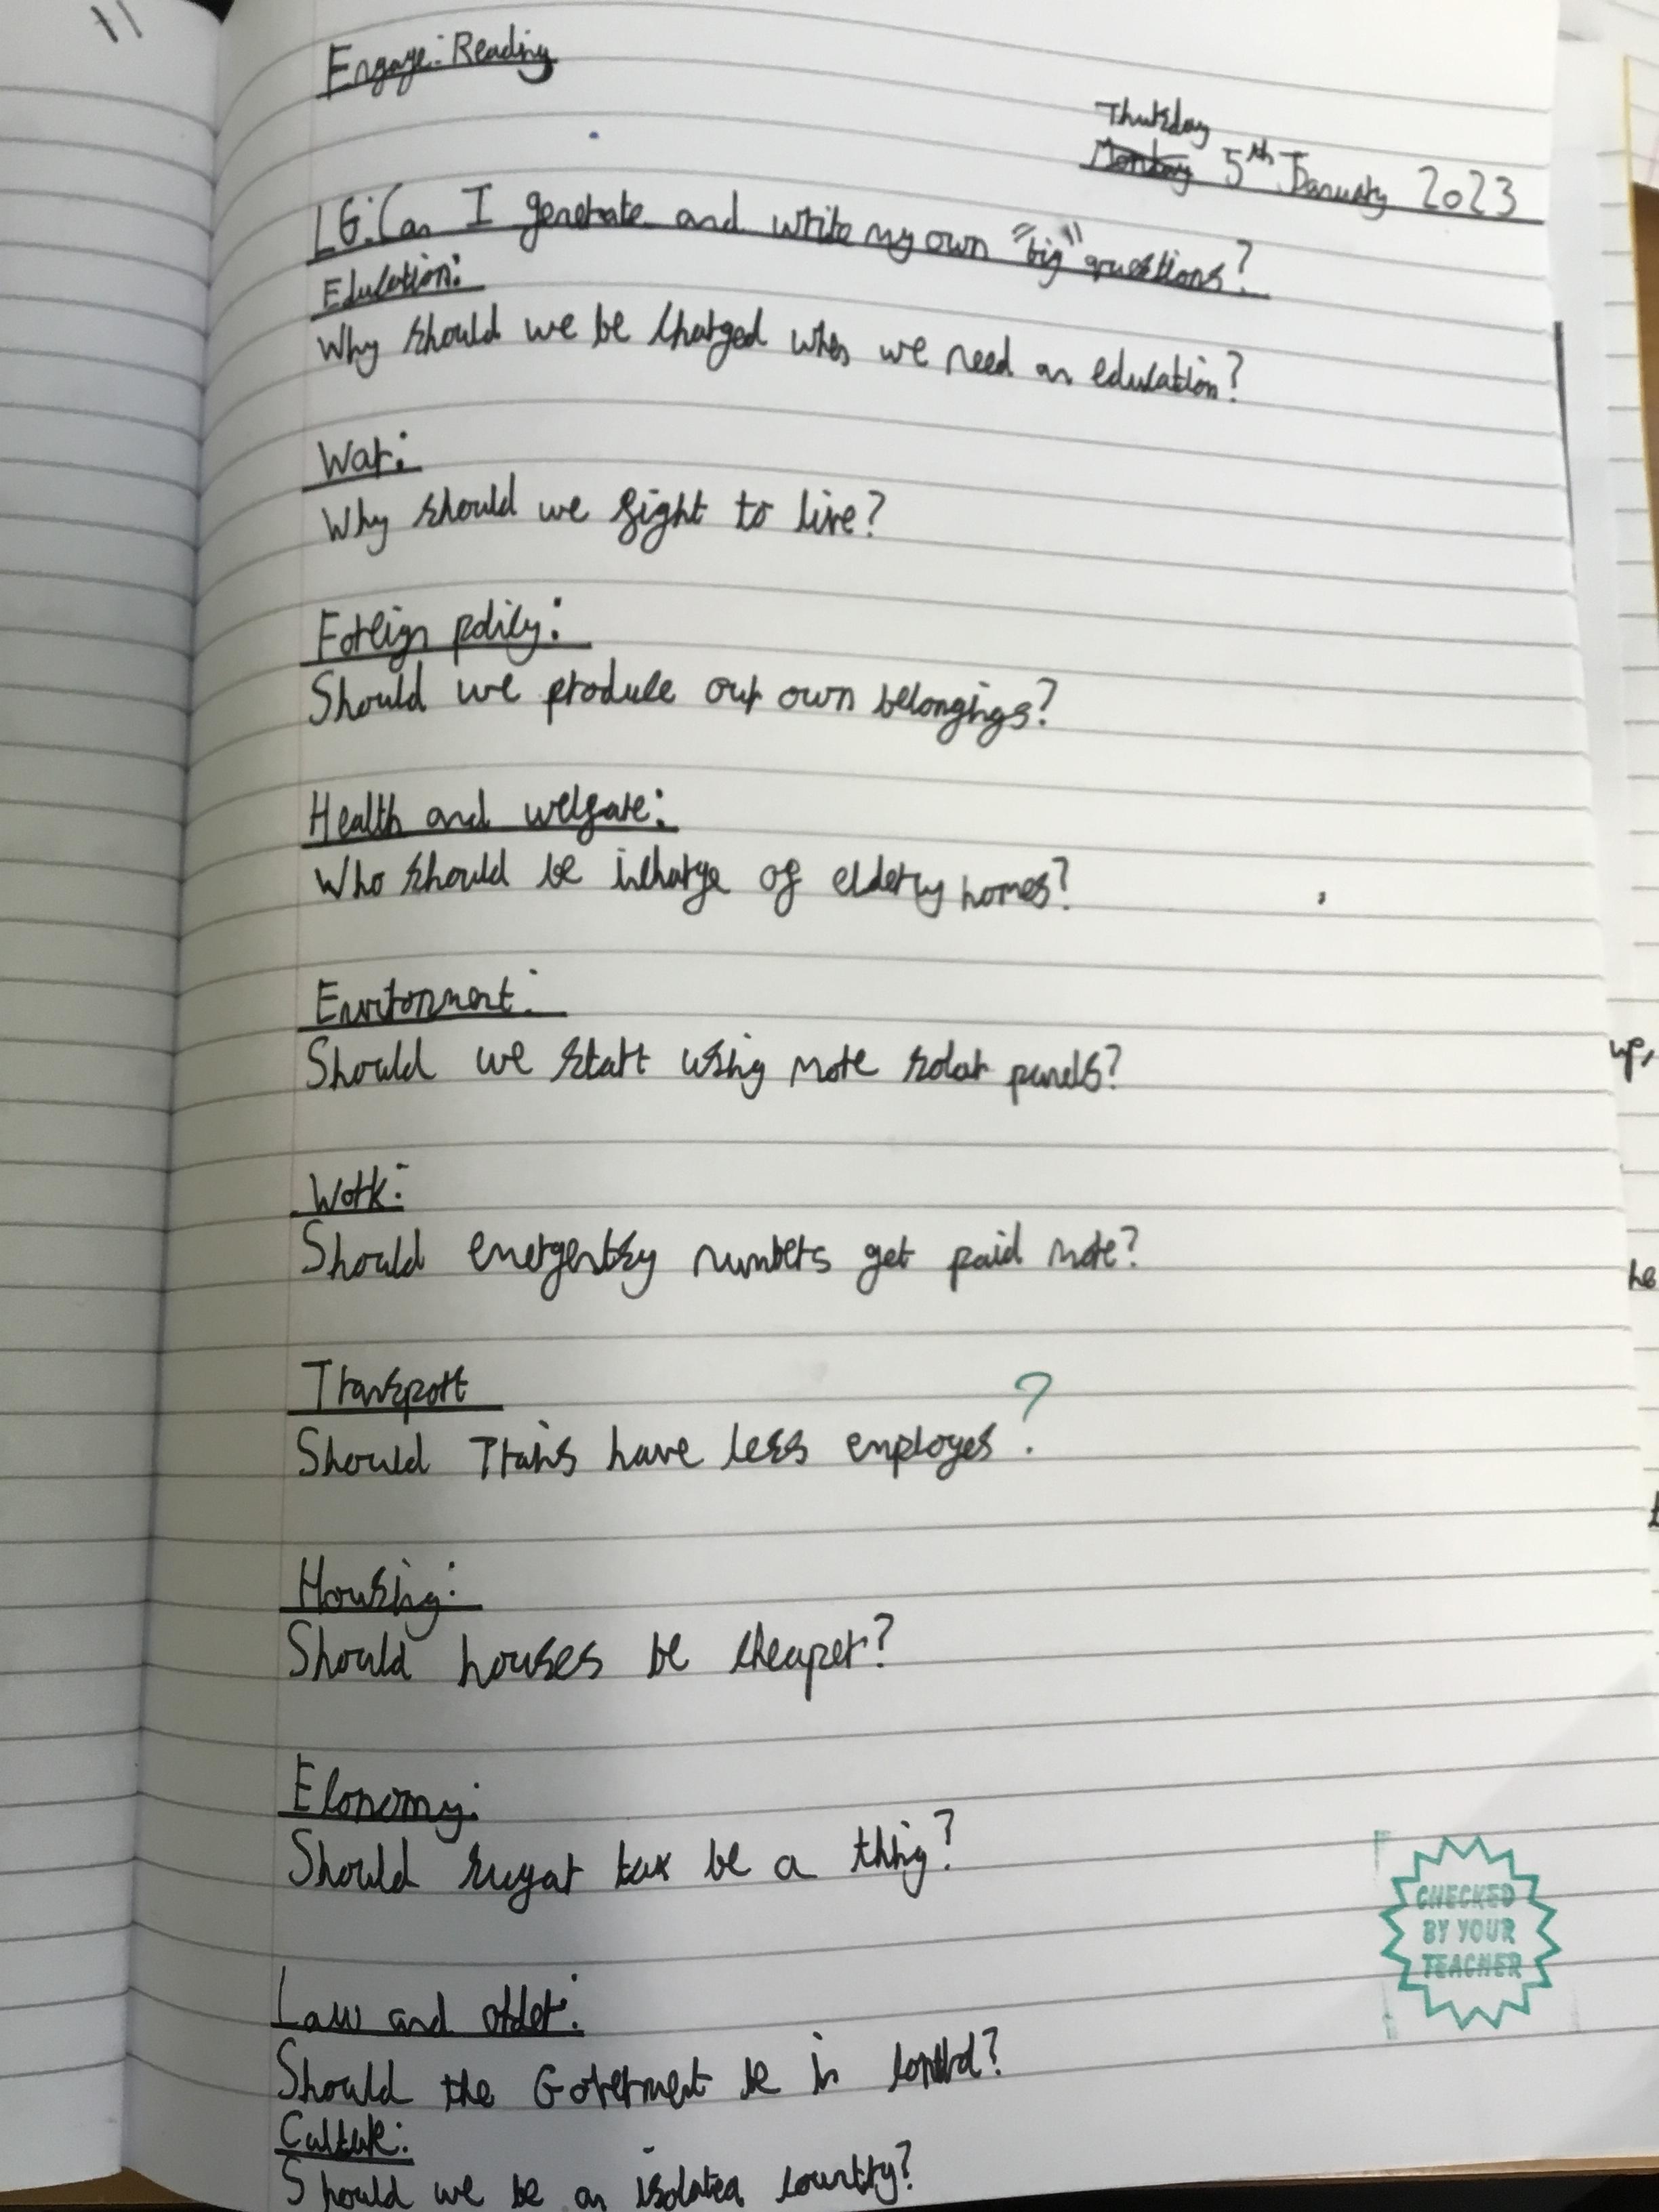 Engage: Reading
Thursday
Monday 5th January 2023
LG: Can I generate and write my own "big" questions?
Education:
Why should we be charged when we need an education?
War:
Why should we fight to live?
Foreign policy:
Should we produce our own belongings?
Health and welfare:
Who should be incharge of elderly homes?
Environment:
Should we start using more solar panels?
Work:
Should emergentsy numbers get paid more?
Transport
Should Trains have less employes ?.
Housing:
Should houses be cheaper?
Economy:
Should sugar tax be a thing?
CHECKED
BY YOUR
TEACHER
Law and order:
Should the Goverment be in control?
Culture:
Should we be an isolated country?
up,
he